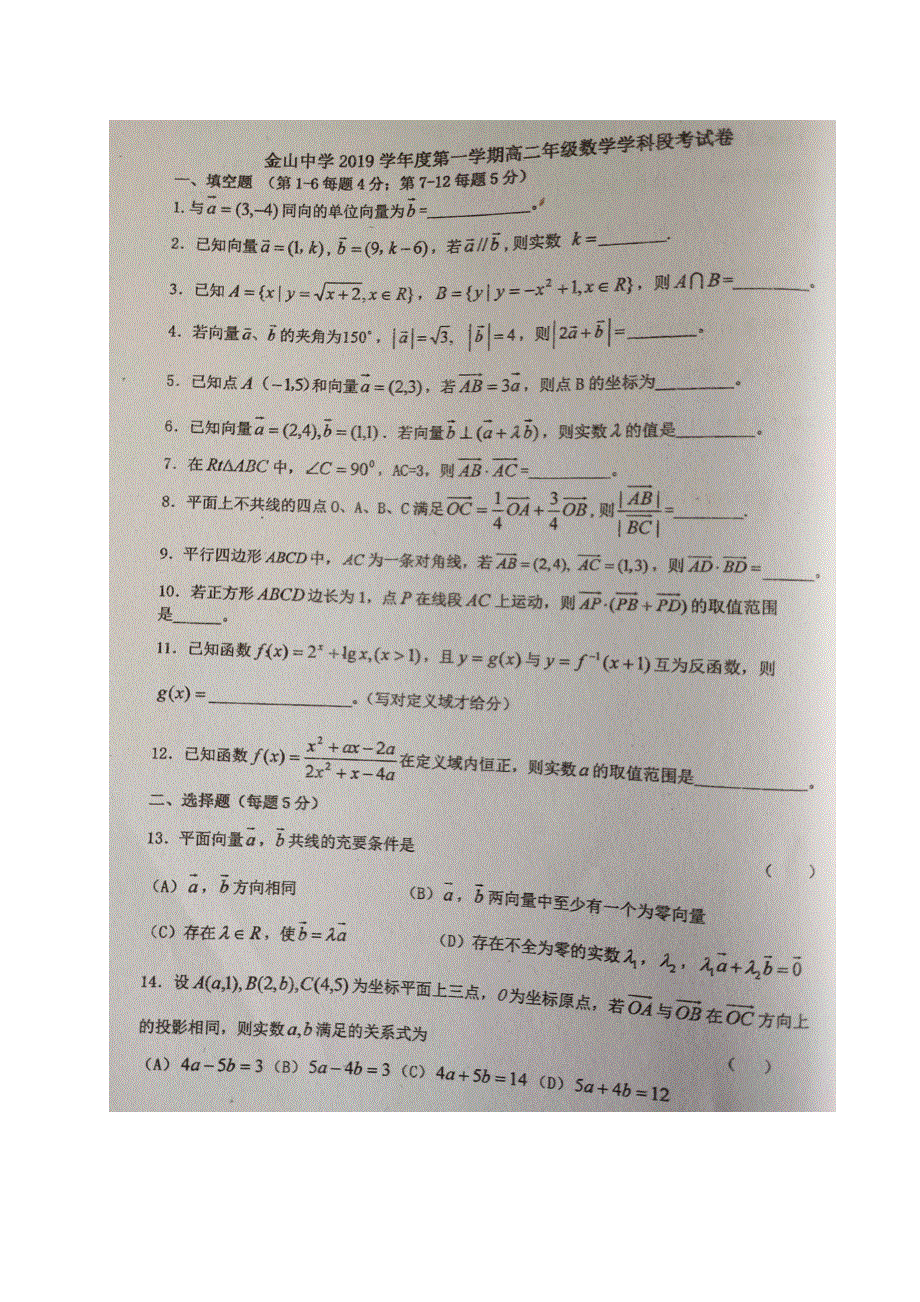 金山中学 2019 学年度第一学期高二年级数学学科段考试卷
一、填空题 （第 1-6 每题 4 分；第 7-12 每题 5 分）
1. 与 $\vec{a}=(3,-4)$ 同向的单位向量为 $\vec{b}$ =________。
2. 已知向量 $\vec{a}=(1,k),\vec{b}=(9,k-6)$，若 $\vec{a}//\vec{b}$，则实数 $k=$______.
3. 已知 $A=\{x|y=\sqrt{x+2},x\in R\}$，$B=\{y|y=-x^2+1,x\in R\}$，则 $A\bigcap B=$________。
4. 若向量 $\vec{a}$、$\vec{b}$ 的夹角为 $150°$，$|\vec{a}|=\sqrt{3}$, $|\vec{b}|=4$，则 $|2\vec{a}+\vec{b}|=$_______。
5. 已知点 A（$-1,5$)和向量 $\vec{a}=(2,3)$，若 $\overrightarrow{AB}=3\vec{a}$，则点 B 的坐标为________。
6. 已知向量 $\vec{a}=(2,4),\vec{b}=(1,1)$．若向量 $\vec{b}\perp(\vec{a}+\lambda\vec{b})$，则实数 $\lambda$ 的值是________。
7. 在 $Rt\Delta ABC$ 中，$\angle C=90^0$，AC=3，则 $\overrightarrow{AB}\cdot\overrightarrow{AC}=$________。
8. 平面上不共线的四点 O、A、B、C 满足 $\overrightarrow{OC}=\frac{1}{4}\overrightarrow{OA}+\frac{3}{4}\overrightarrow{OB}$，则 $\frac{|\overrightarrow{AB}|}{|\overrightarrow{BC}|}=$_______.
9. 平行四边形 ABCD 中，AC 为一条对角线，若 $\overrightarrow{AB}=(2,4)$, $\overrightarrow{AC}=(1,3)$，则 $\overrightarrow{AD}\cdot\overrightarrow{BD}=$_____。
10. 若正方形 ABCD 边长为 1，点 P 在线段 AC 上运动，则 $\overrightarrow{AP}\cdot(\overrightarrow{PB}+\overrightarrow{PD})$ 的取值范围
是_____。
11. 已知函数 $f(x)=2^x+\lg x,(x>1)$，且 $y=g(x)$ 与 $y=f^{-1}(x+1)$ 互为反函数，则
$g(x)=$______________。（写对定义域才给分）
12. 已知函数 $f(x)=\frac{x^2+ax-2a}{2x^2+x-4a}$ 在定义域内恒正，则实数 $a$ 的取值范围是___________。
二、选择题（每题 5 分）
13. 平面向量 $\vec{a}$，$\vec{b}$ 共线的充要条件是
（ ）
（A）$\vec{a}$，$\vec{b}$ 方向相同 （B）$\vec{a}$，$\vec{b}$ 两向量中至少有一个为零向量
（C）存在 $\lambda\in R$，使 $\vec{b}=\lambda\vec{a}$ （D）存在不全为零的实数 $\lambda_1$，$\lambda_2$，$\lambda_1\vec{a}+\lambda_2\vec{b}=\vec{0}$
14. 设 $A(a,1),B(2,b),C(4,5)$ 为坐标平面上三点，O 为坐标原点，若 $\overrightarrow{OA}$ 与 $\overrightarrow{OB}$ 在 $\overrightarrow{OC}$ 方向上
的投影相同，则实数 $a,b$ 满足的关系式为
（ ）
（A）$4a-5b=3$（B）$5a-4b=3$（C）$4a+5b=14$（D）$5a+4b=12$